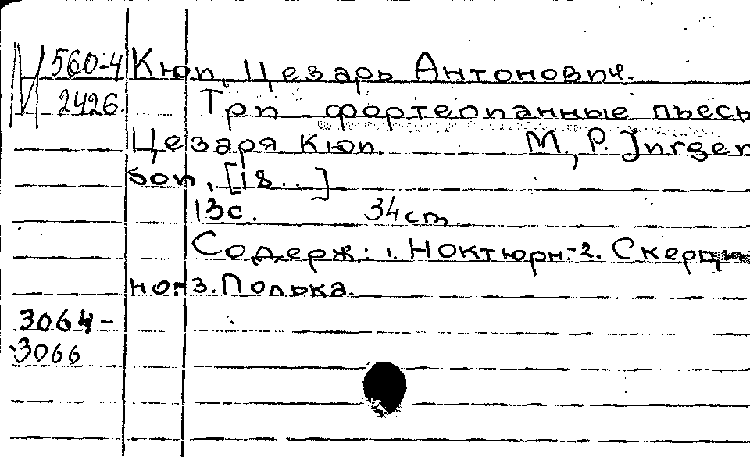 М 560-4 Кюи, Цезарь Антонович.
2426 Три фортепианные пьесы
Цезаря Кюи. M., P. Jurgen
son, [18..]
13с. 34cm
Содерж: 1. Ноктюрн-2. Скерци
но-3. Полька.
3064-
3066